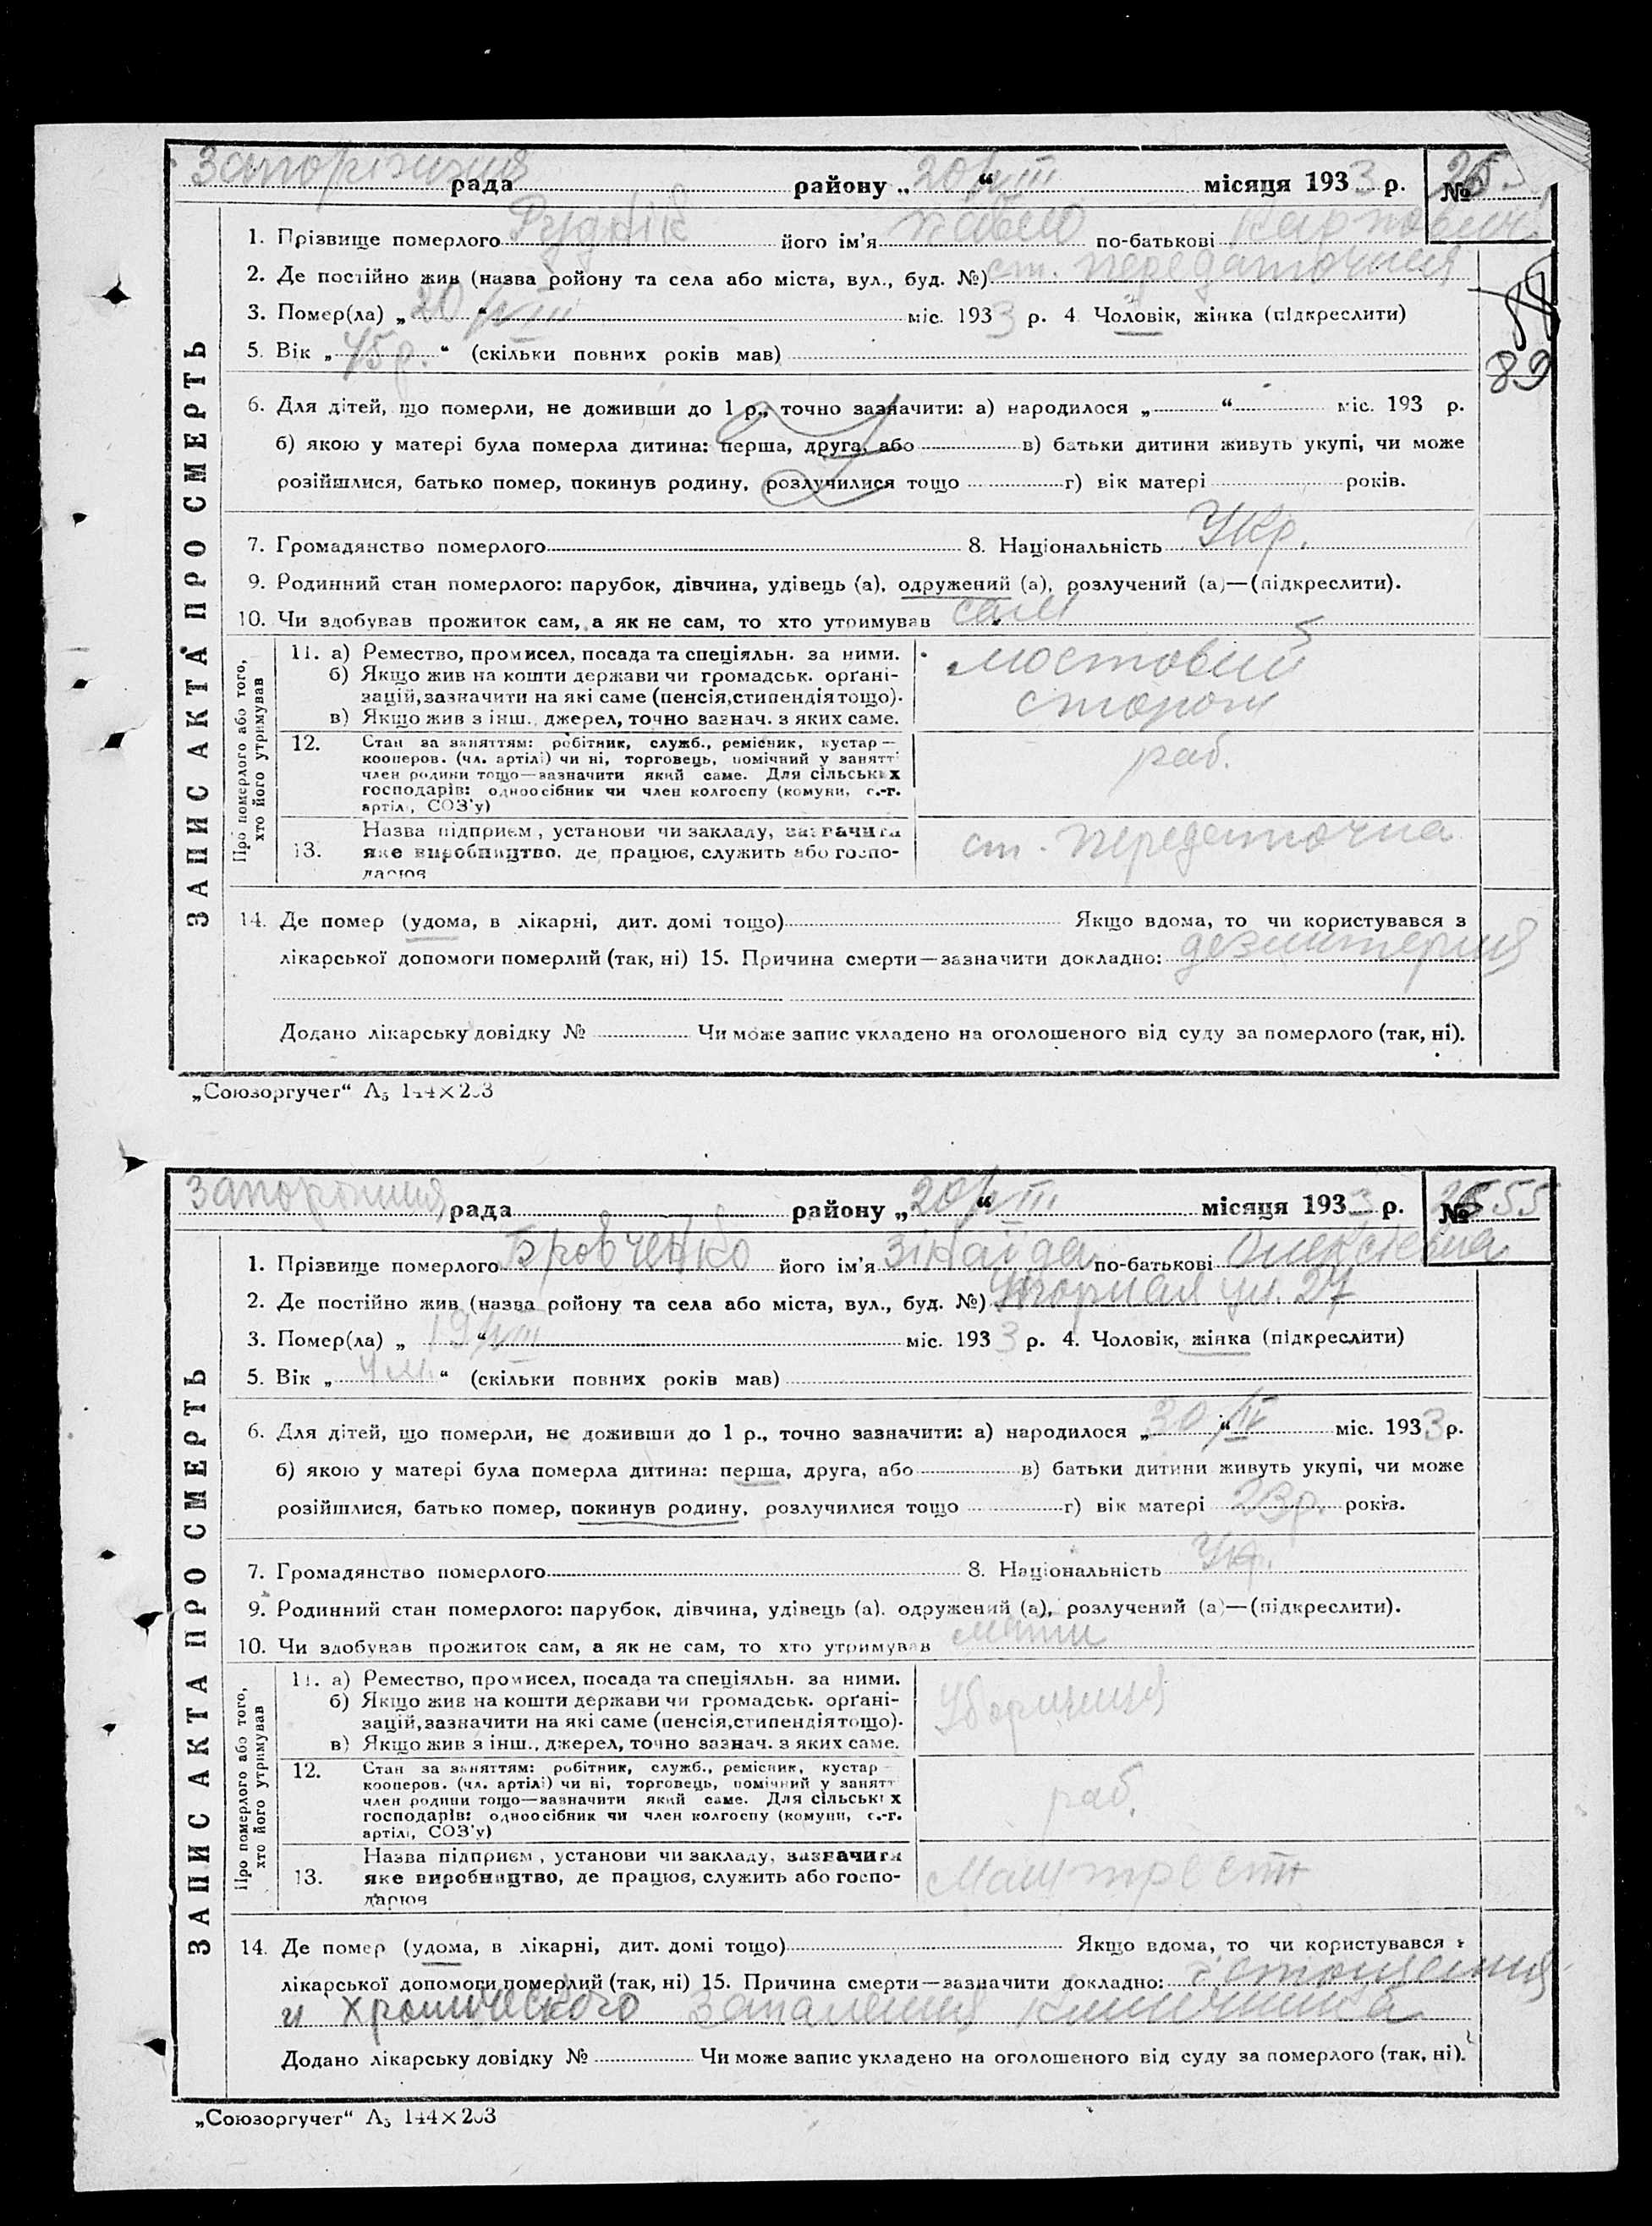 Запоріжжя рада району „20/VIII“ місяця 1933 р. №
1. Прізвище померлого Руднік його ім’я Павло по-батькові Карпович
2. Де постійно жив (назва ройону та села або міста, вул., буд. №) ст. Передаточная
3. Помер(ла) „20/VIII“ міс. 1933 р. 4. Чоловік, жінка (підкреслити)
5. Вік „45 р.“ (скільки повних років мав)
88
89
6. Для дітей, що померли, не доживши до 1 р., точно зазначити: а) народилося „ “ міс. 193 р.
б) якою у матері була померла дитина: перша, друга, або в) батьки дитини живуть укупі, чи може
розійшлися, батько помер, покинув родину, розлучилися тощо г) вік матері років.
7. Громадянство померлого 8. Національність Укр.
9. Родинний стан померлого: парубок, дівчина, удівець (а), одружений (а), розлучений (а)—(підкреслити).
10. Чи здобував прожиток сам, а як не сам, то хто утримував сам
ЗАПИС АКТА ПРО СМЕРТЬ
Про померлого або того, хто його утримував
11. а) Ремество, промисел, посада та спеціяльн. за ними.
б) Якщо жив на кошти держави чи громадськ. орґані-
зацій, зазначити на які саме (пенсія, стипендія тощо).
в) Якщо жив з інш., джерел, точно зазнач. з яких саме.
мостовий
сторож
12. Стан за заняттям: робітник, служб., ремісник, кустар—
кооперов. (чл. артілі) чи ні, торговець, помічний у занятт
член родини тощо—зазначити який саме. Для сільських
господарів: одноосібник чи член колгоспу (комуни, с.-г.
артілі, СОЗ’у)
раб.
13. Назва підприєм., установи чи закладу, зазначити
яке виробництво, де працює, служить або госпо-
дарює
ст. Передаточна
14. Де помер (удома, в лікарні, дит. домі тощо) Якщо вдома, то чи користувався з
лікарської допомоги померлий (так, ні) 15. Причина смерти—зазначити докладно: дезинтерия
Додано лікарську довідку № Чи може запис укладено на оголошеного від суду за померлого (так, ні).
„Союзоргучет“ А₅ 144×203
Запоріжжя рада району „20/VIII“ місяця 1933 р. № 2555
1. Прізвище померлого Бровченко його ім’я Зінаїда по-батькові Олексіевна
2. Де постійно жив (назва ройону та села або міста, вул., буд. №) ул. 27
3. Помер(ла) „19/VIII“ міс. 1933 р. 4. Чоловік, жінка (підкреслити)
5. Вік „4 м.“ (скільки повних років мав)
6. Для дітей, що померли, не доживши до 1 р., точно зазначити: а) народилося „30/IV“ міс. 1933 р.
б) якою у матері була померла дитина: перша, друга, або в) батьки дитини живуть укупі, чи може
розійшлися, батько помер, покинув родину, розлучилися тощо г) вік матері 23 р. років.
7. Громадянство померлого 8. Національність Укр.
9. Родинний стан померлого: парубок, дівчина, удівець (а), одружений (а), розлучений (а)—(підкреслити).
10. Чи здобував прожиток сам, а як не сам, то хто утримував мати
ЗАПИС АКТА ПРО СМЕРТЬ
Про померлого або того, хто його утримував
11. а) Ремество, промисел, посада та спеціяльн. за ними.
б) Якщо жив на кошти держави чи громадськ. орґані-
зацій, зазначити на які саме (пенсія, стипендія тощо).
в) Якщо жив з інш., джерел, точно зазнач. з яких саме.
Уборщиця
12. Стан за заняттям: робітник, служб., ремісник, кустар
кооперов. (чл. артілі) чи ні, торговець, помічний у занятт
член родини тощо—зазначити який саме. Для сільських
господарів: одноосібник чи член колгоспу (комуни, с.-г.
артілі, СОЗ’у)
раб.
13. Назва підприєм., установи чи закладу, зазначити
яке виробництво, де працює, служить або госпо-
дарює
Маштрест
14. Де помер (удома, в лікарні, дит. домі тощо) Якщо вдома, то чи користувався з
лікарської допомоги померлий (так, ні) 15. Причина смерти—зазначити докладно: истощения
и хронического запаления кишечника
Додано лікарську довідку № Чи може запис укладено на оголошеного від суду за померлого (так, ні).
„Союзоргучет“ А₅ 144×203